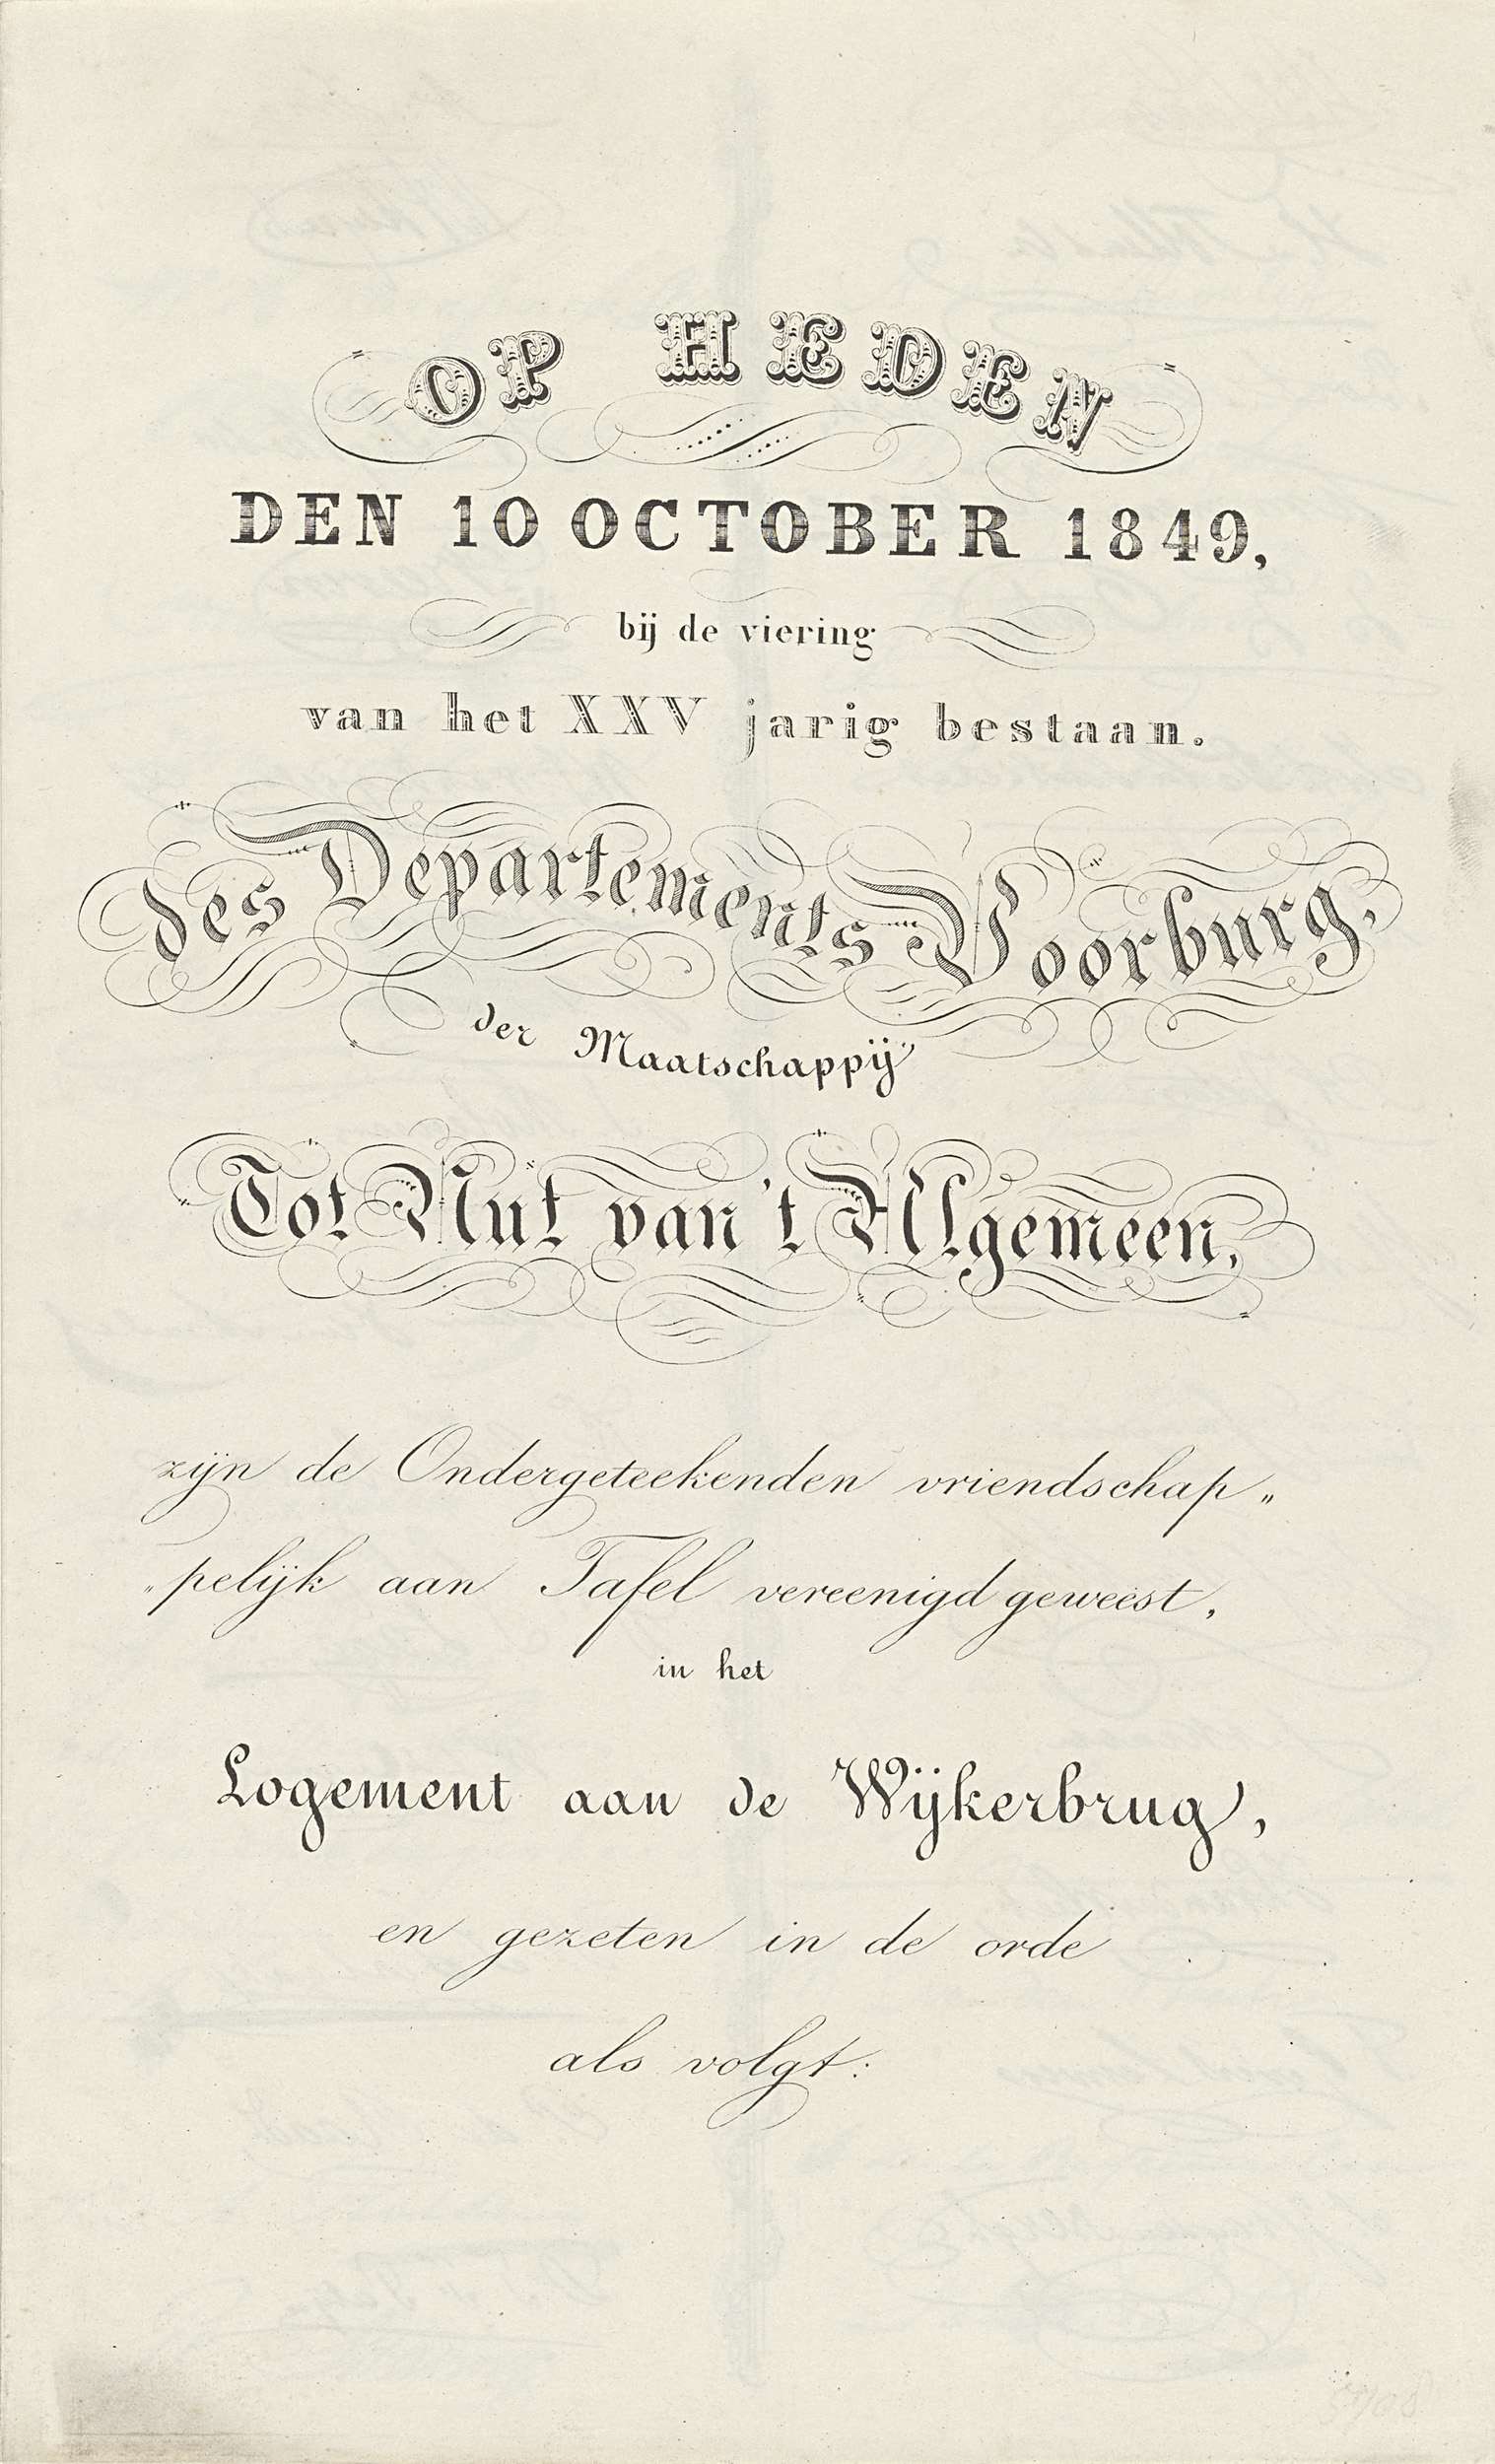 OP HEDEN
DEN 10 OCTOBER 1849,
bij de viering
van het XXV jarig bestaan.
des Departements Voorburg,
der Maatschappij
Tot Nut van 't Algemeen,
zijn de Ondergeteekenden vriendschap„
„pelijk aan Tafel vereenigd geweest,
in het
Logement aan de Wijkerbrug,
en gezeten in de orde
als volgt: